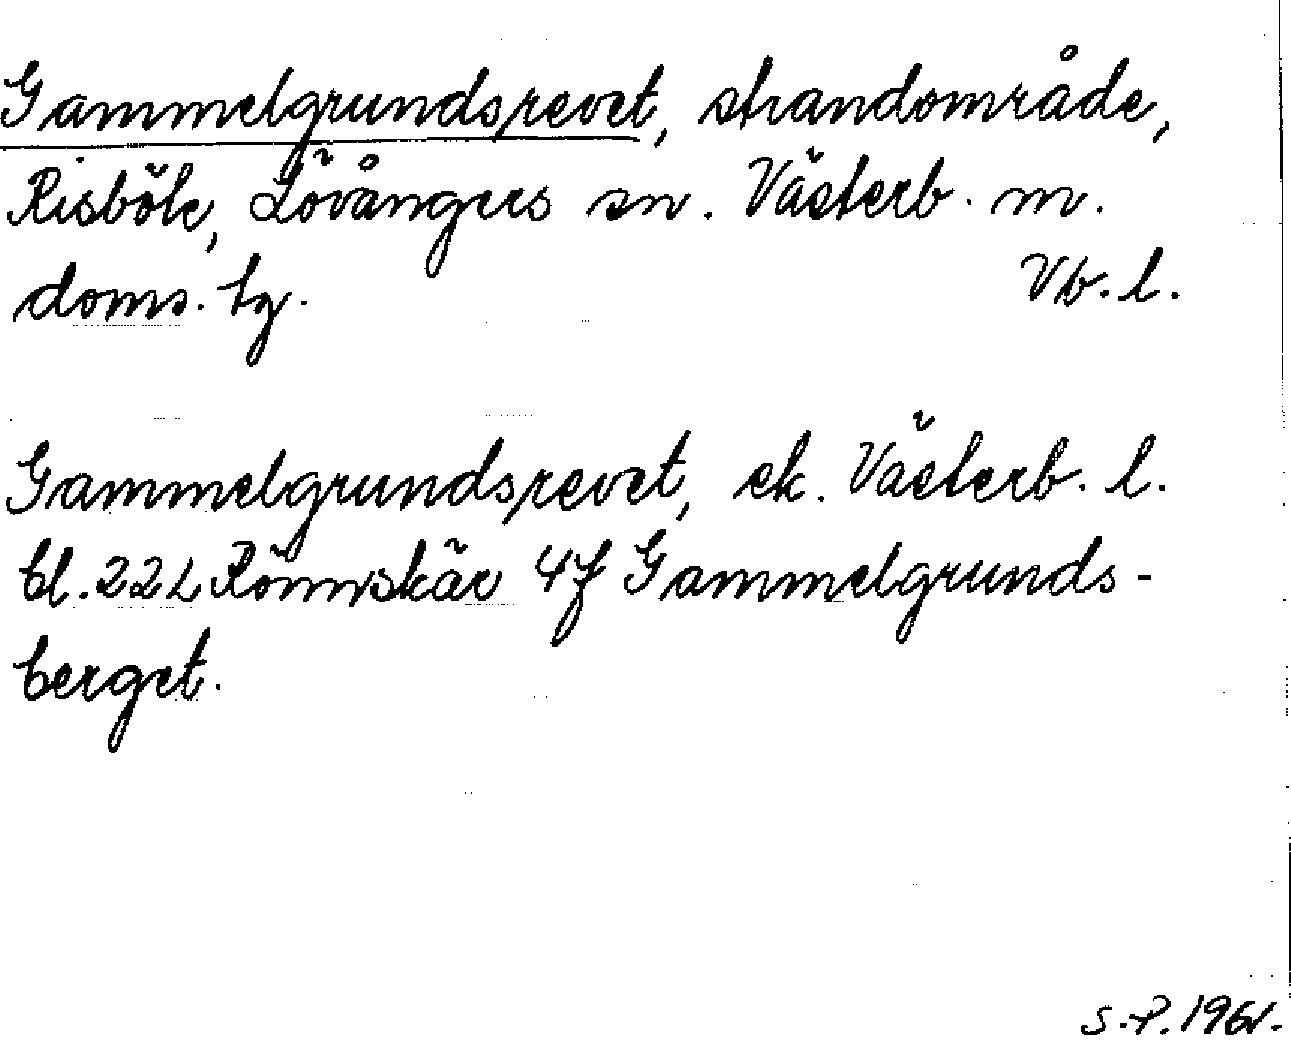 Gammelgrundsrevet, strandområde,
Risböle, Lövångers sn. Västerb. m.
doms. tg. Vb. l.
Gammelgrundsrevet, ek. Västerb. l.
bl. 22L Rönnskär 4f Gammelgrunds-
berget.
S.P. 1961.